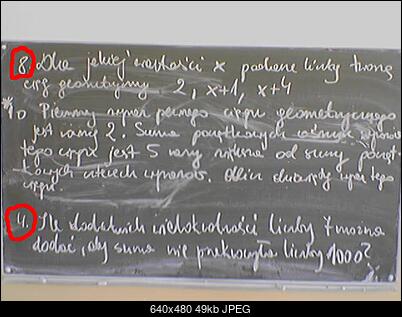 8. Dla jakiej wartości x podane liczby tworzą
ciąg geometryczny 2, x+1, x+4
Pierwszy wyraz pewnego ciągu geometrycznego
jest równy 2. Suma początkowych ośmiu wyrazów
tego ciągu jest 5 razy większa od sumy począt-
kowych czterech wyrazów. Oblicz wyraz tego
ciągu.
4. Ile dodatnich wielokrotności liczby 7 można
dodać, aby suma nie przekroczyła liczby 1000?
640x480 49kb JPEG